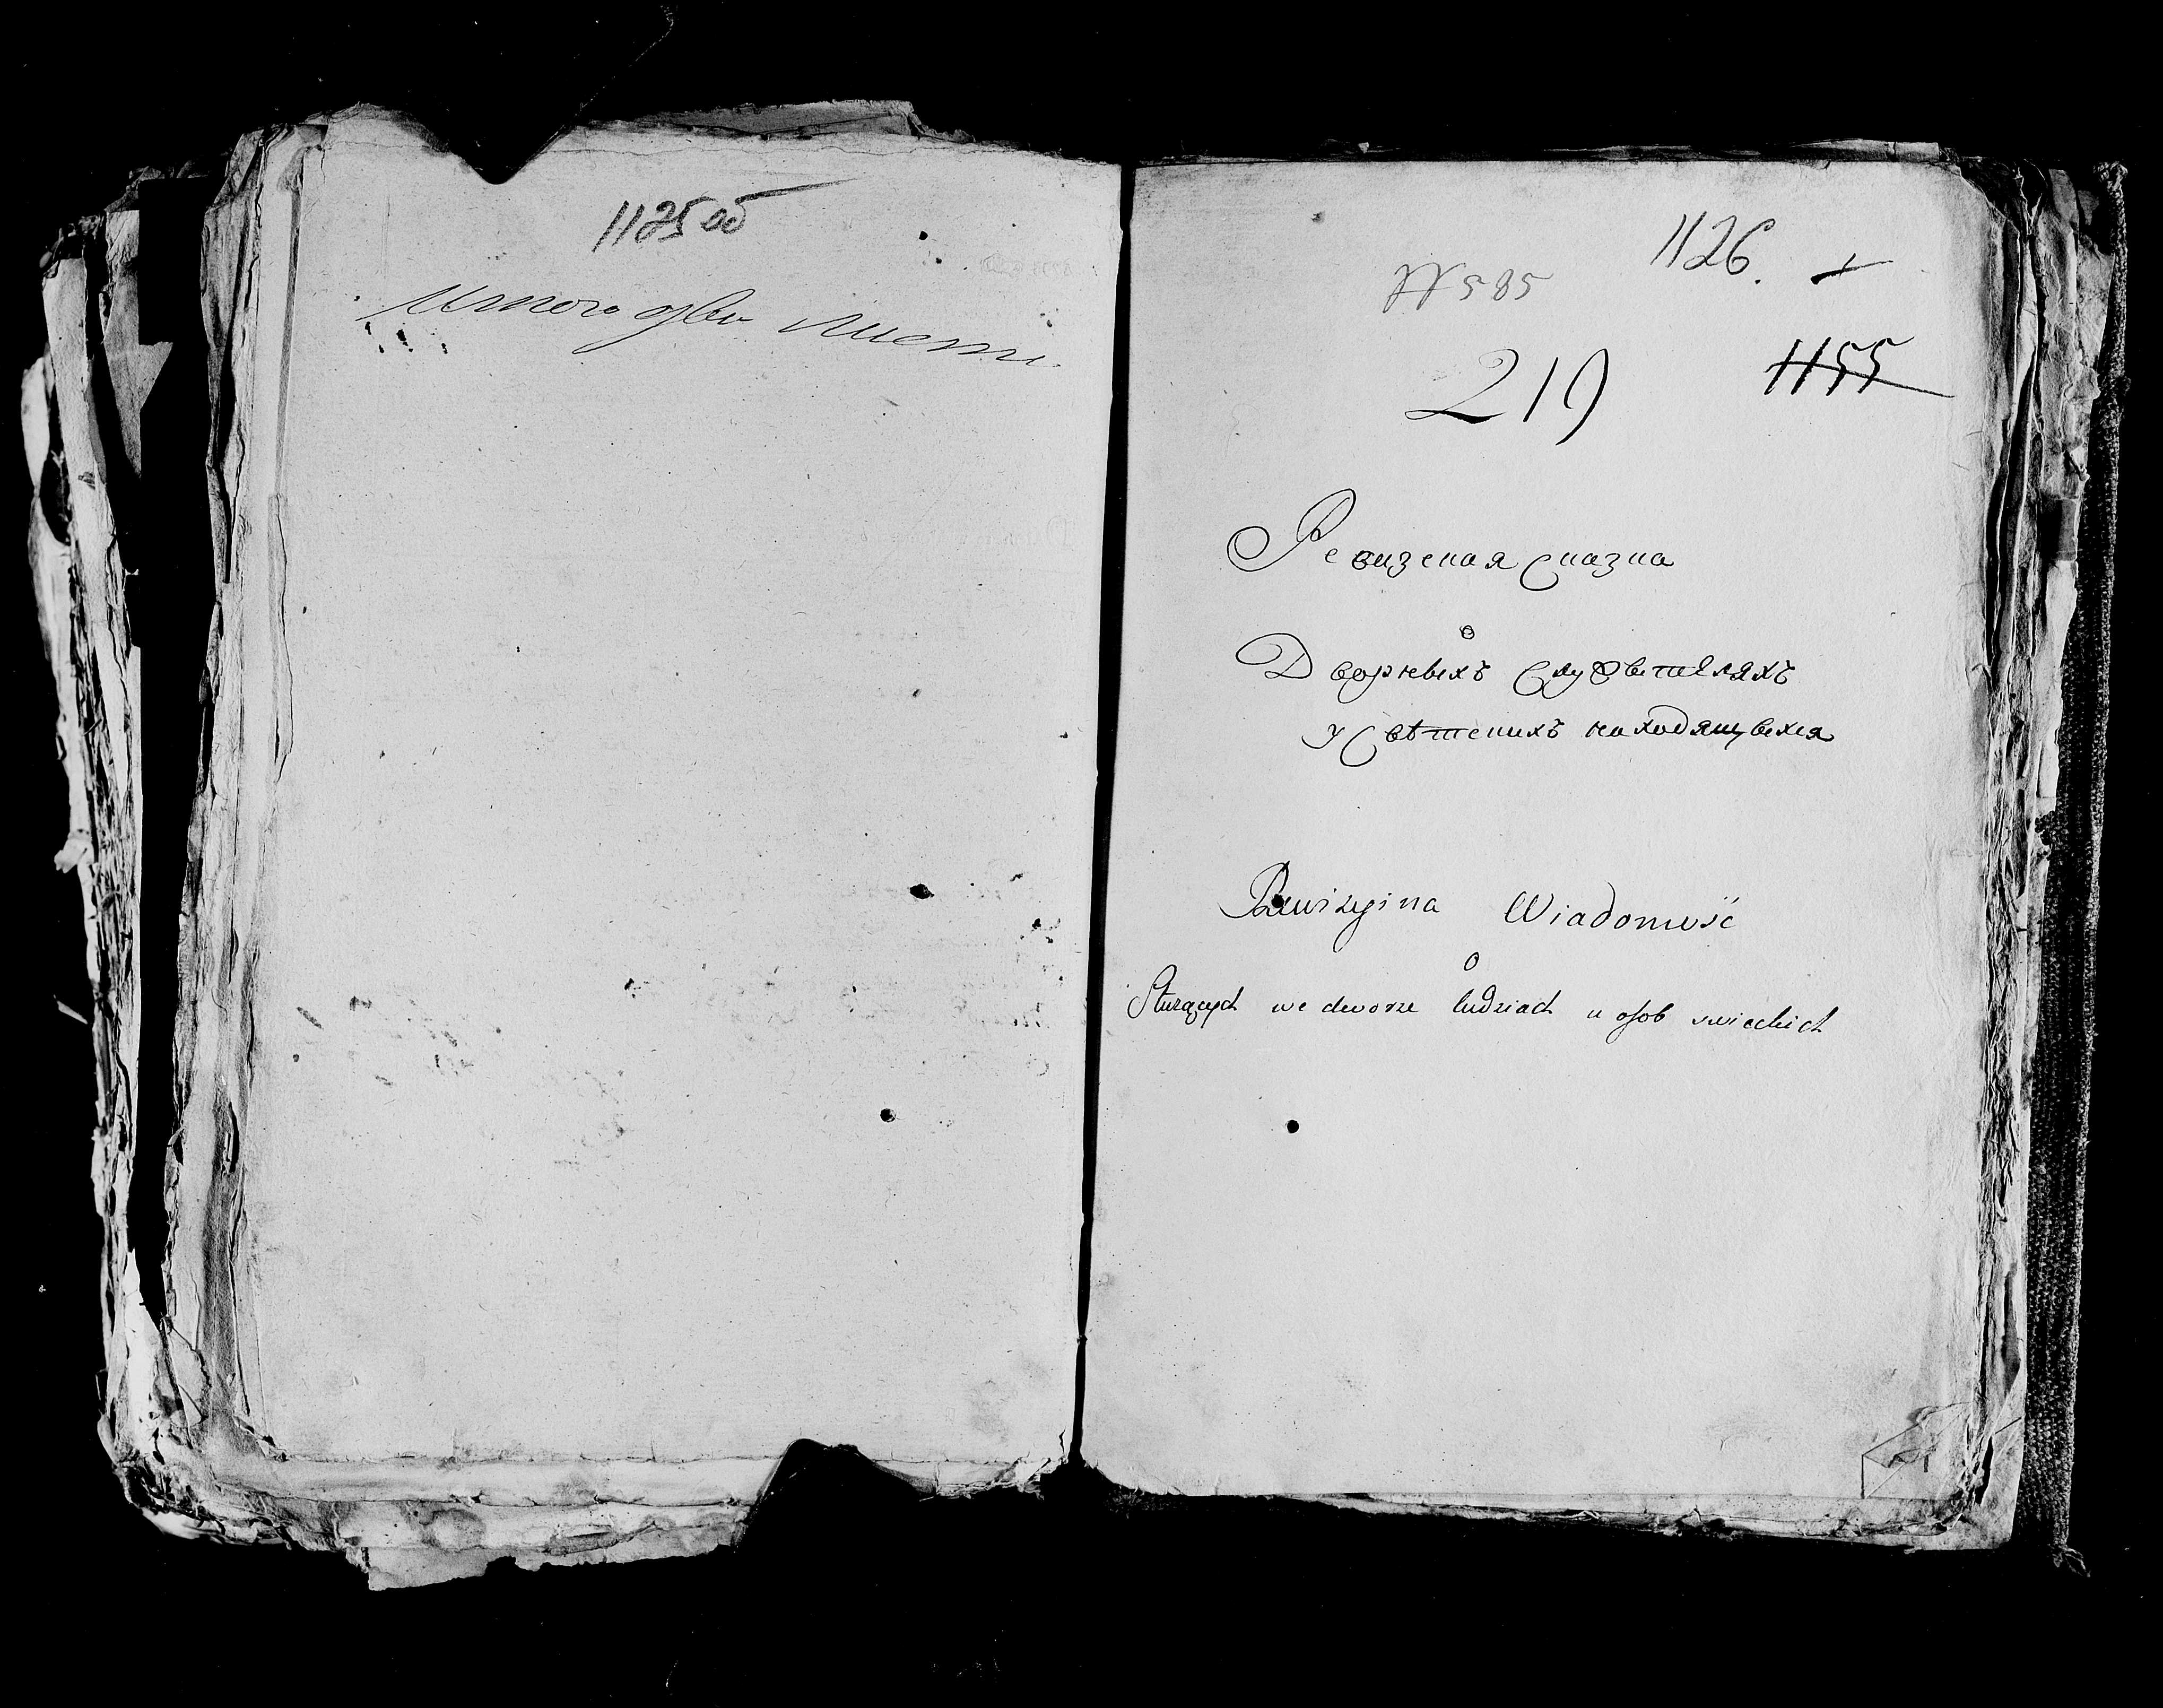 1125 об
Итого два листа
1126.
№ 585
219
1155
Ревизская Сказка
о
Дворневыхъ Служителяхъ
у Свѣтскихъ находящихся
Rewizyina Wiadomość
O
Służących we dworze ludziach u osob swieckich